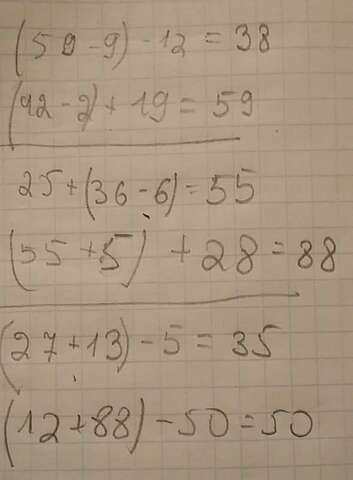 (59-9)-12=38
(42-2)+19=59
25+(36-6)=55
(55+5)+28=88
(27+13)-5=35
(12+88)-50=50